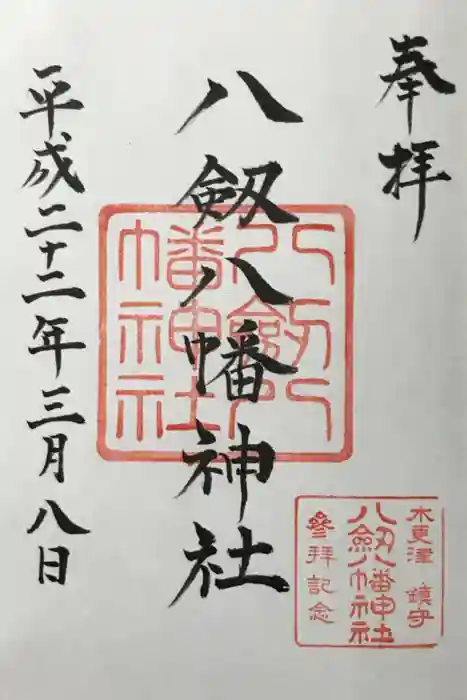 奉拝
八劔八幡神社
平成二十二年三月八日
八劔八
幡神社
木更津 鎮守
八劔八幡神社
參拝記念